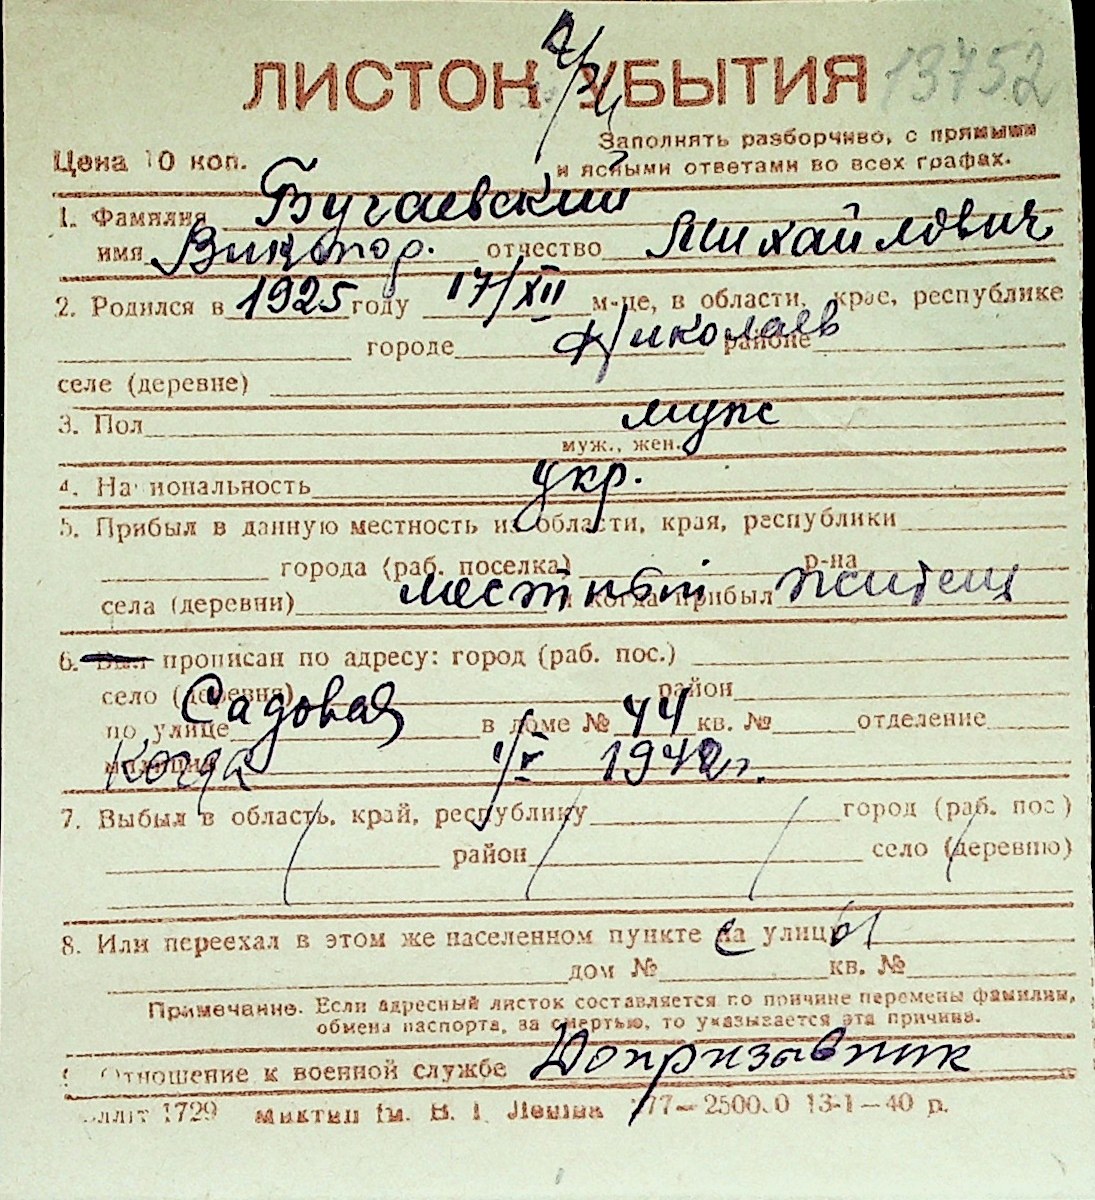 ЛИСТОК УБЫТИЯ 13752
Заполнять разборчиво, с прямыми
Цена 10 коп. и ясными ответами во всех графах.
1. Фамилия Бугаевский
имя Виктор. отчество Михайлович
2. Родился в 1925 году 17/XII м-це, в области, крае, республике
городе Николаев районе
селе (деревне)
3. Пол муж
муж., жен.
4. Национальность укр.
5. Прибыл в данную местность из области, края, республики
города (раб. поселка) р-на
села (деревни) местный и когда прибыл житель
6. Был прописан по адресу: город (раб. пос.)
село (деревня) район
по улице Садовая в доме № 44 кв. № отделение
милиции Когда 1/V 1942 г.
7. Выбыл в область, край, республику город (раб. пос)
район село (деревню)
8. Или переехал в этом же населенном пункте на улицы
с
дом № кв. №
Примечание. Если адресный листок составляется по причине перемены фамилии,
обмена паспорта, за смертью, то указывается эта причина.
Отношение к военной службе Допризывник
1729 им. В. І. Леніна 177—250000 13-1—40 р.